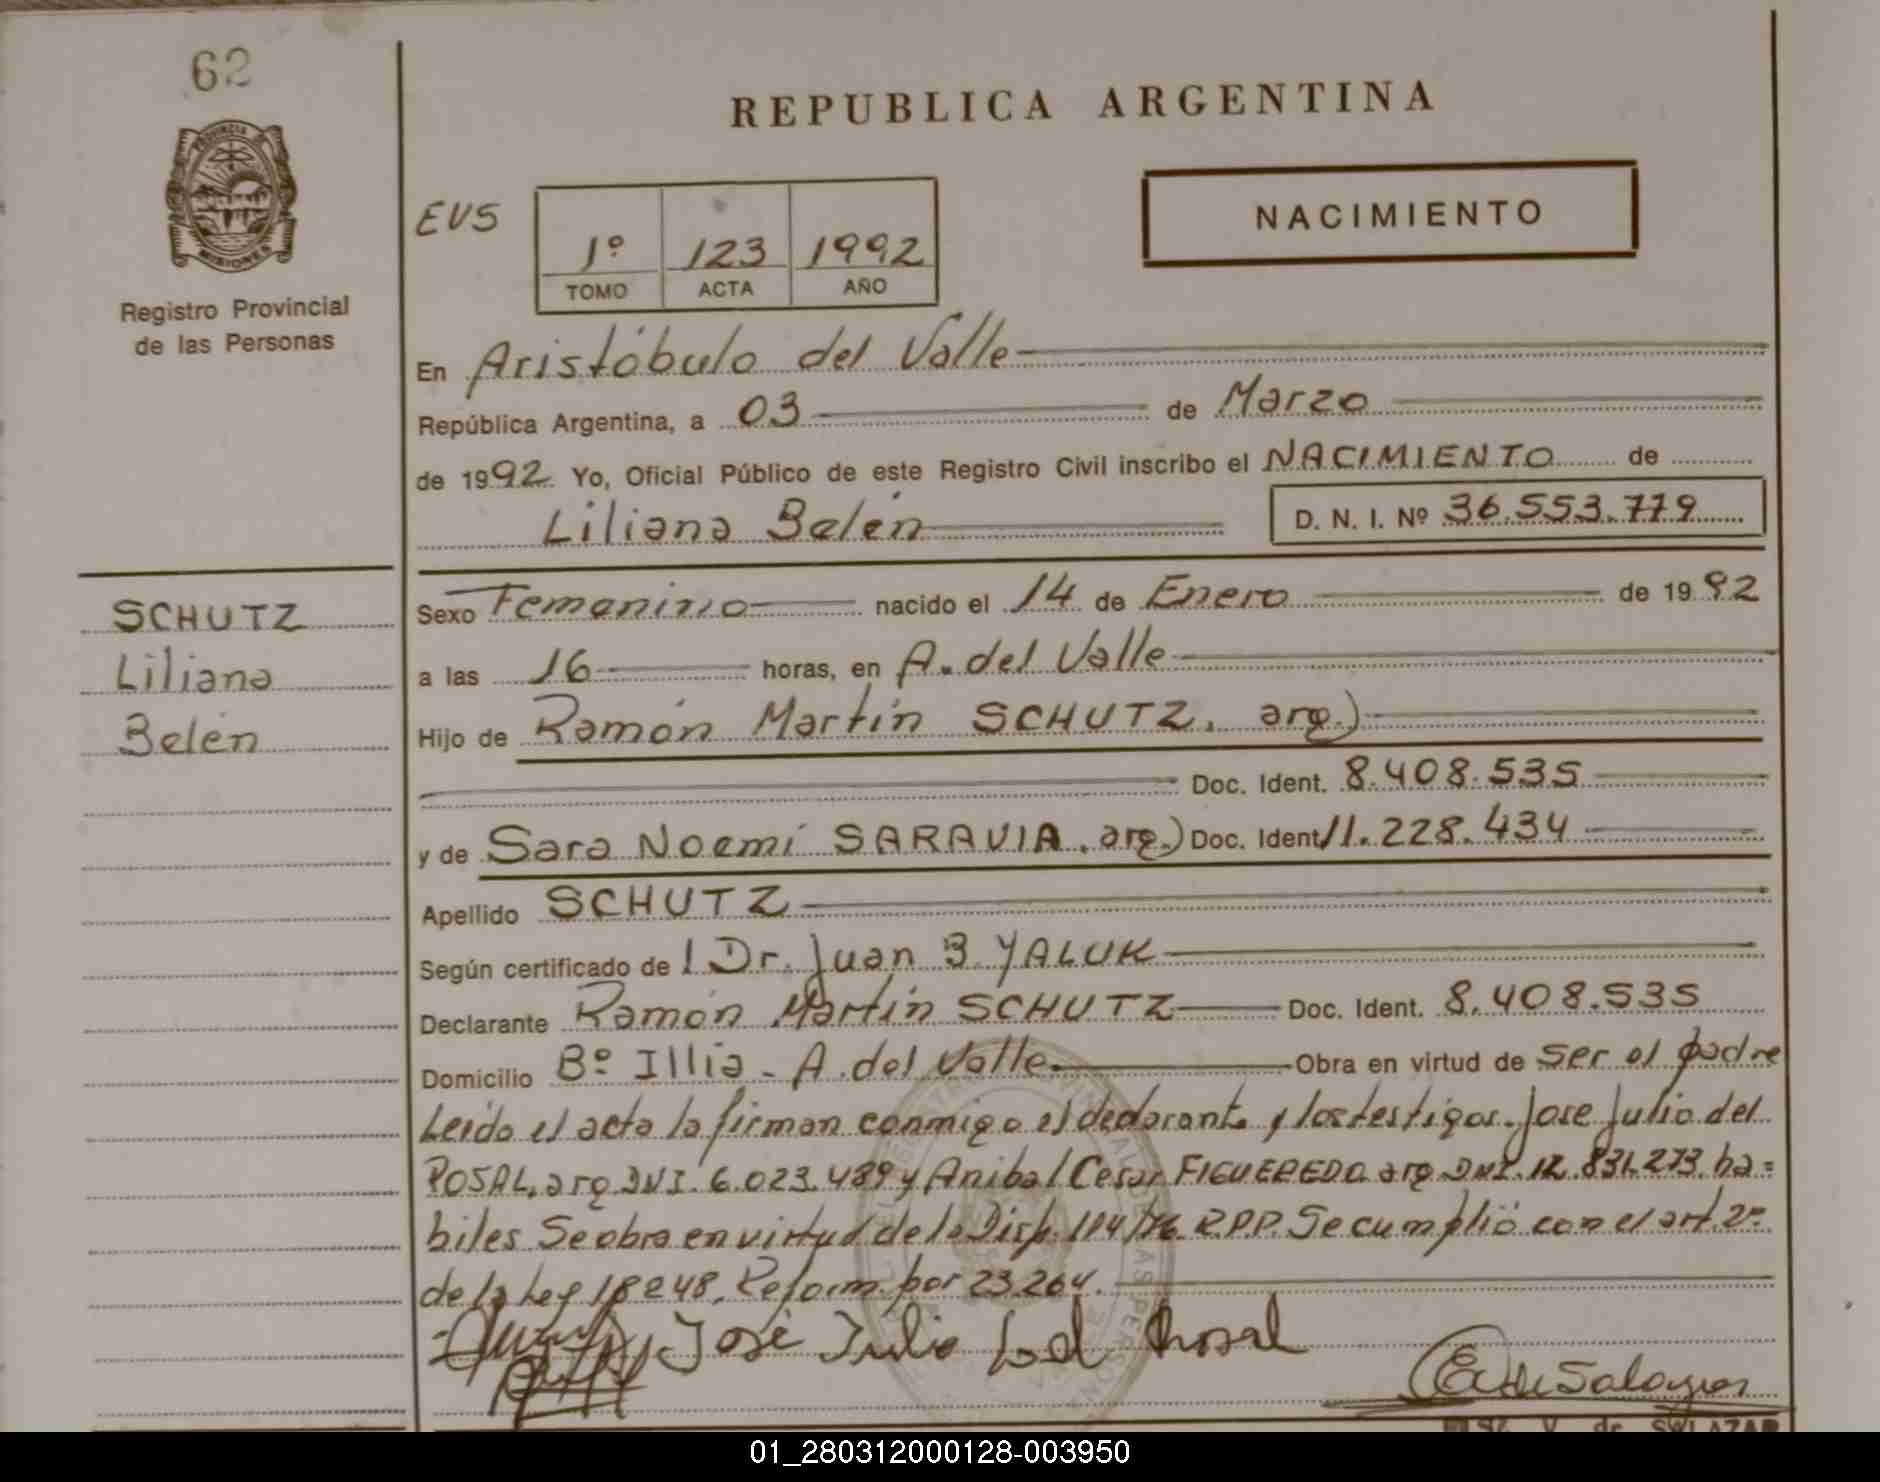 62
PROVINCIA
MISIONES
Registro Provincial
de las Personas
SCHUTZ
Liliana
Belén
REPUBLICA ARGENTINA
NACIMIENTO
EVS
1º 123 1992
TOMO ACTA AÑO
En Aristóbulo del Valle
República Argentina, a 03 de Marzo
de 1992 Yo, Oficial Público de este Registro Civil inscribo el NACIMIENTO de
Liliana Belén D. N. I. Nº 36.553.779
Sexo Femenino nacido el 14 de Enero de 1992
a las 16 horas, en A. del Valle
Hijo de Ramón Martín SCHUTZ. arg.)
Doc. Ident. 8.408.535
y de Sara Noemí SARAVIA. arg.) Doc. Ident. 11.228.434
Apellido SCHUTZ
Según certificado de l Dr. Juan B YALUK
Declarante Ramón Martín SCHUTZ Doc. Ident. 8.408.535
Domicilio Bº Illia - A. del Valle Obra en virtud de ser el padre
Leído el acta la firman conmigo el declarante y los testigos. Jose Julio del
ROSAL, arg DNI. 6.023.489 y Anibal Cesar FIGUEREDO arg DNI. 12.831.273 há=
biles. Se obra en virtud de la Disp. 114/76 R.P.P. Se cumplió con el art. 2º
de la Ley 18248, Reform. por 23.264.
José Julio del Rosal
E. de Salazar
V. de SALAZAR
01_280312000128-003950